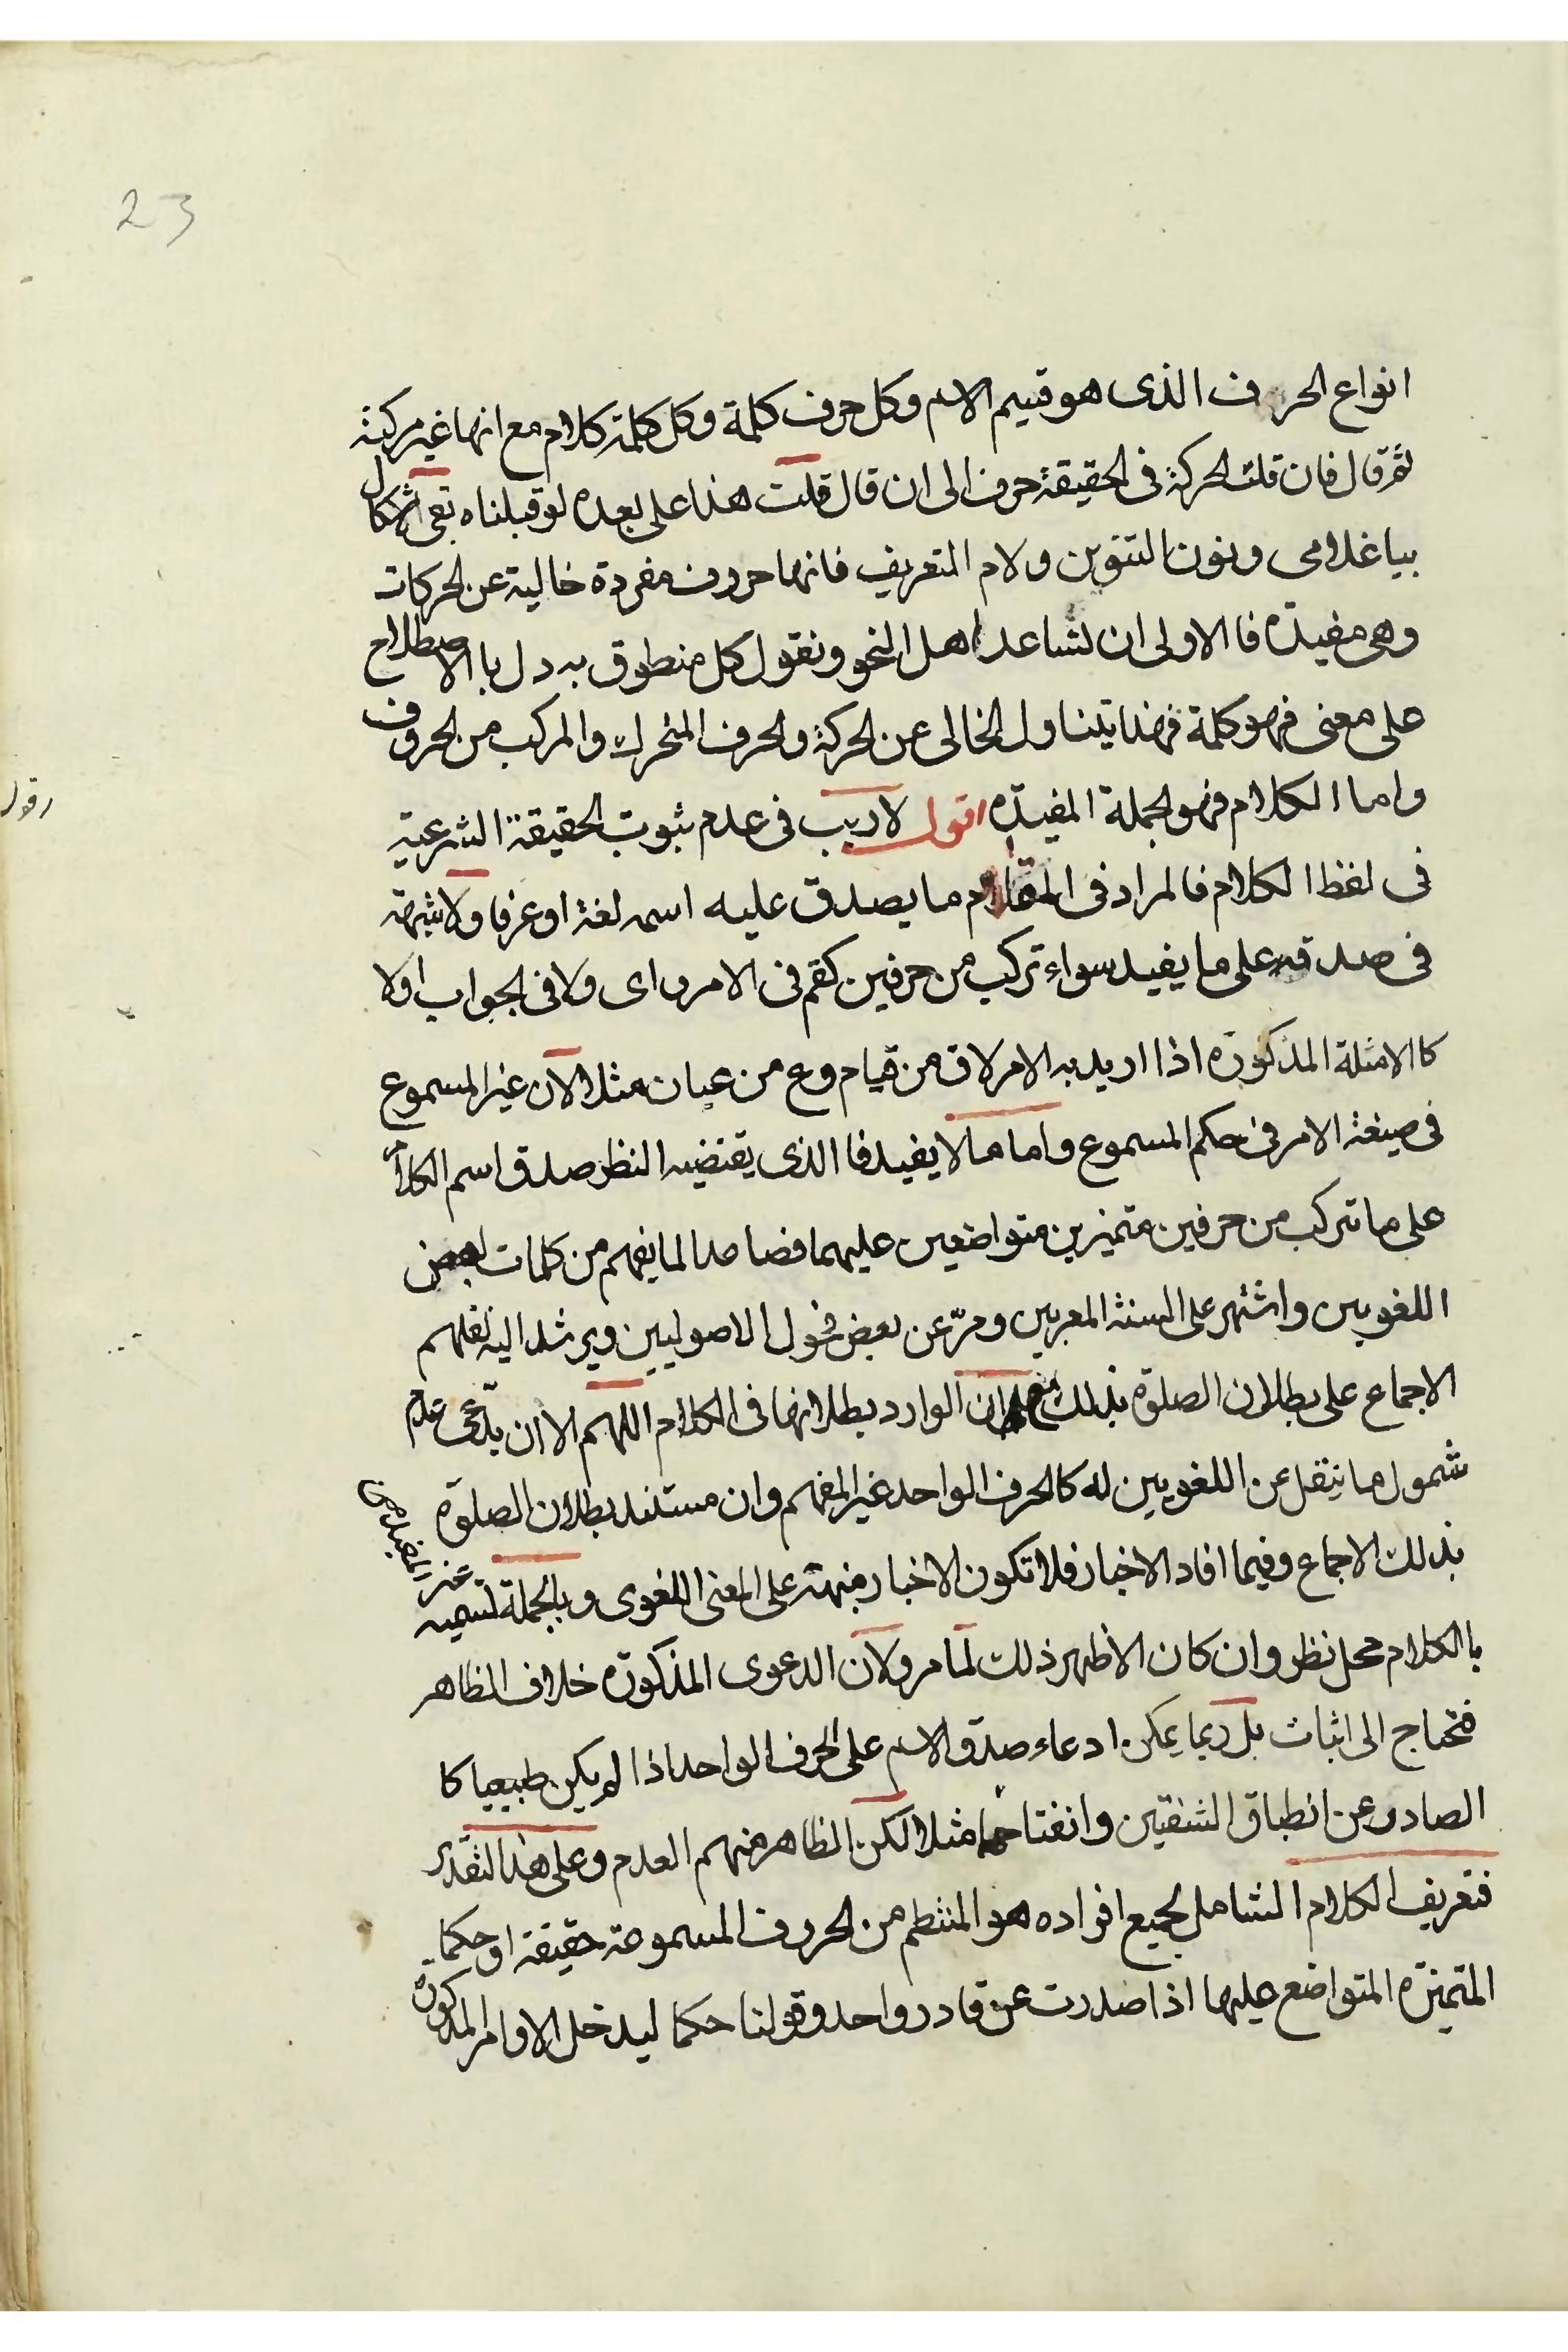 23
انواع الحروف الذى هو قسيم الاسم وكل حرف كلمة وكل كلمة كلام مع انها غير مركبة
ثم قال فان قلت الحركة فى الحقيقة حرف الى ان قال قلت هذا على بعده لو قبلناه بقى اشكال
بيا غلامى ونون التنوين ولام التعريف فانها حروف مفردة خالية عن الحركات
وهى مفيدة فا الاولى ان نساعد اهل النحو ونقول كل منطوق به دل با الاصطلاح
على معنى فهو كلمة فهذا يتناول الخالى عن الحركة والحرف المتحرك والمركب من الحروف
واما الكلام فهو الجملة المفيدة اقول لا ريب فى عدم ثبوت الحقيقة الشرعية
فى لفظ الكلام فالمراد فى المقام ما يصدق عليه اسمه لغة او عرفا ولا شبهة
فى صدقه على ما يفيد سواء تركب من حرفين كقم فى الامر واى ولا فى الجواب اولا
كا الامثلة المذكورة اذا اريد به الامر لاق من قيام وع من عيان مثلا لان غير المسموع
فى صيغة الامر فى حكم المسموع واما ما لا يفيد فا الذى يقتضيه النظر صدق اسم الكلام
على ما تركب من حرفين متميزين متواضعين عليهما فصاعدا لما يفهم من كلمات بعض
اللغويين واشتهر على السنة المعربين ومرّ عن بعض فحول الاصوليين ويرشد اليه نقلهم
الاجماع على بطلان الصلوة بذلك مع ان الوارد بطلانها فى الكلام اللهم الا ان يدّعى عدم
شمول ما ينقل عن اللغويين له كا الحرف الواحد غير المفهم وان مستند بطلان الصلوة
بذلك الاجماع وفيما افاد الاخبار فلا تكون الاخبار منبهة على المعنى اللغوى وبالجملة تسميه
غير المفيد من
با الكلام محل نظر وان كان الاظهر ذلك لما مر ولان الدعوى المذكورة خلاف الظاهر
فتحتاج الى اثبات بل ربما يمكن ادعاء صدق الاسم على الحرف الواحد اذا لم يكن طبيعيا كا
الصادر عن انطباق الشفتين وانفتاحهما مثلا لكن الظاهر منهم العدم وعلى هذا التقدير
فتعريف الكلام الشامل لجميع افراده هو المنتظم من الحروف المسموعة حقيقة او حكما
المتميزة المتواضع عليها اذا صدرت عن قادر واحد وقولنا حكما ليدخل الاوامر المذكورة